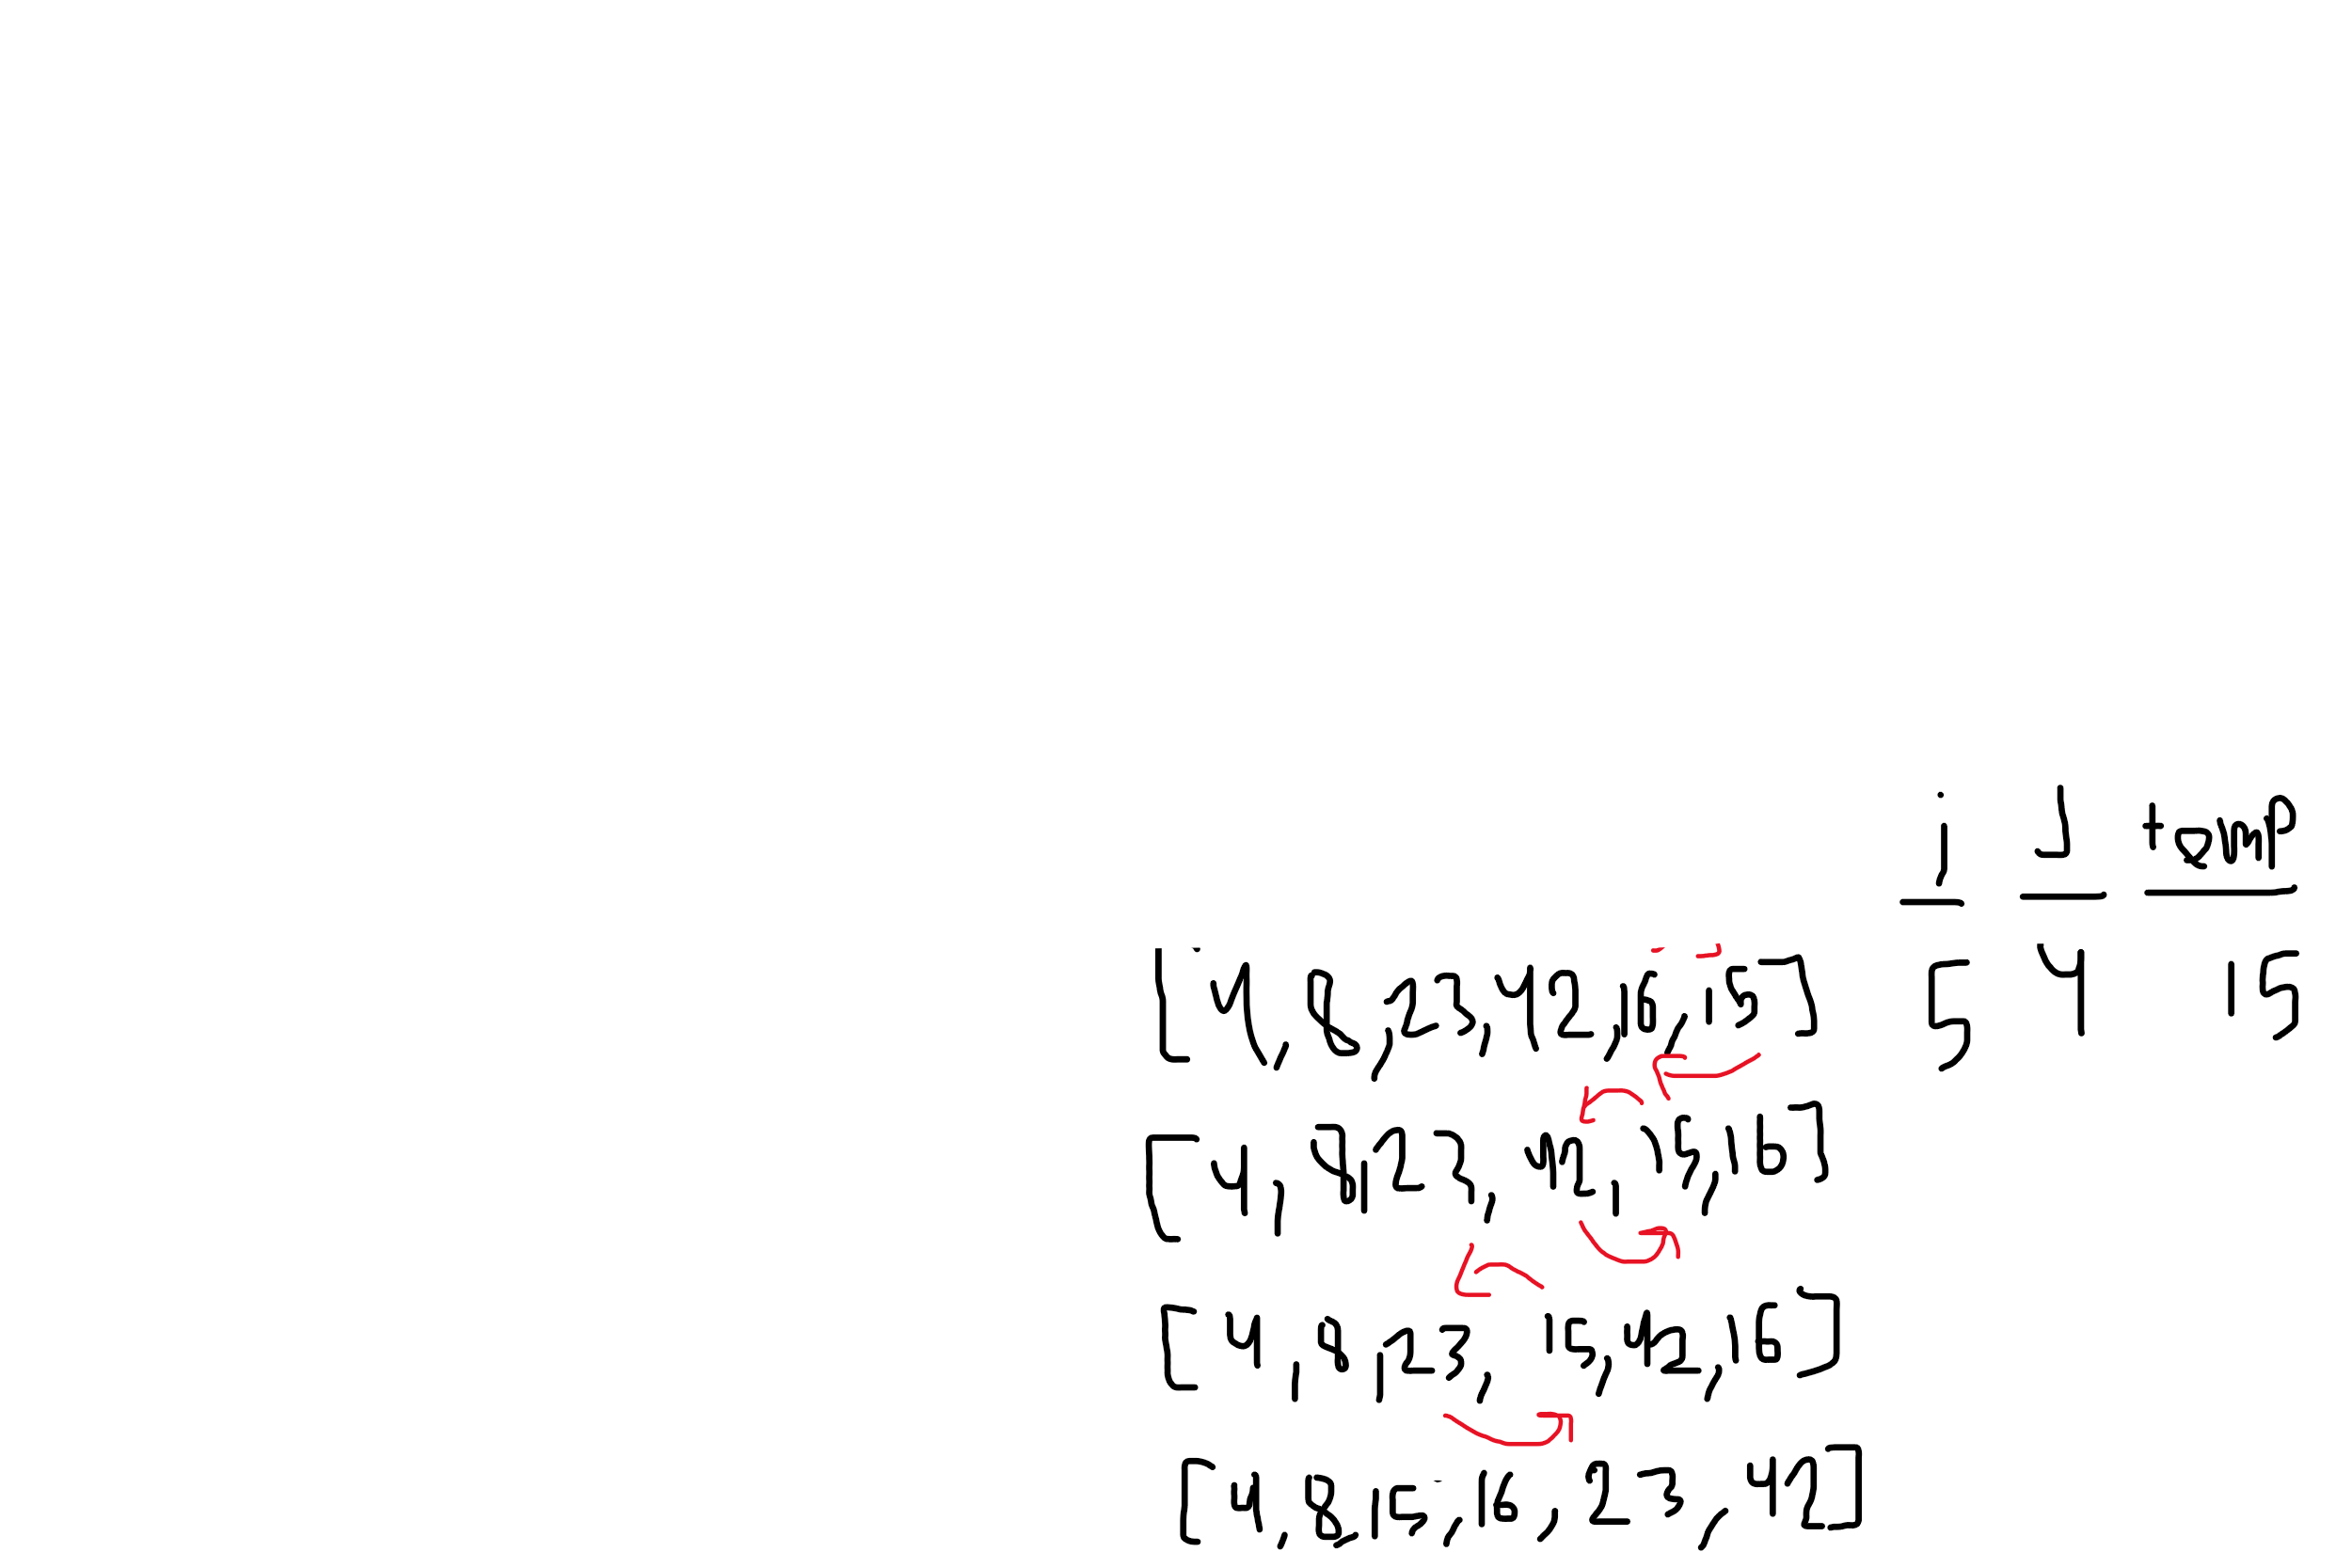 i J temp
[4, 8, 23, 42, 16, 15] 5 4 15
[4, 8, 23, 42, 15, 16]
[4, 8, 23, 15, 42, 16]
[4, 8, 15, 16, 23, 42]